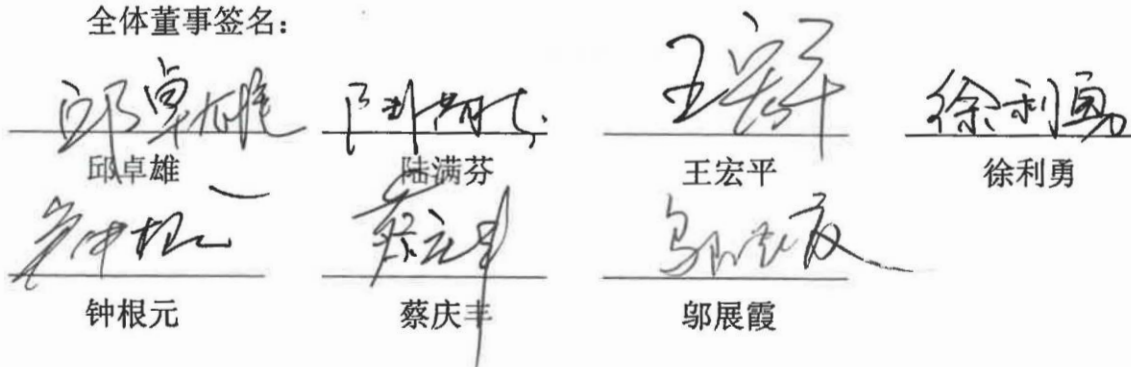 全体董事签名：
邱卓雄 陆满芬 王宏平 徐利勇
邱卓雄 陆满芬 王宏平 徐利勇
钟根元 蔡庆丰 邬展霞
钟根元 蔡庆丰 邬展霞